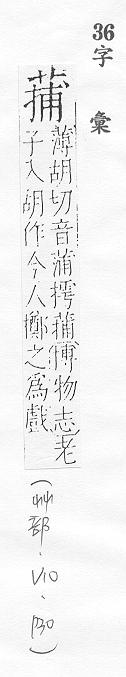 36
字彙
蒲
薄胡切音蒲摴蒲博物志老
子入胡作今人擲之爲戲
(艸部．V10．P30)